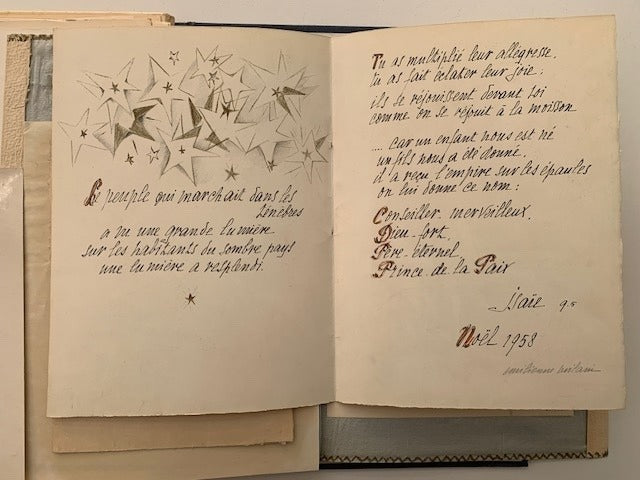 Le peuple qui marchait dans les
ténèbres
a vu une grande lumière
sur les habitants du sombre pays
une lumière a resplendi.
Tu as multiplié leur allégresse,
tu as fait éclater leur joie :
ils se réjouissent devant toi
comme on se réjouit à la moisson
.... car un enfant nous est né
un fils nous a été donné.
il a reçu l'empire sur les épaules
on lui donne ce nom :
Conseiller-merveilleux,
Dieu-fort,
Père-éternel
Prince-de-la Paix
Isaïe 9.
Noël 1958